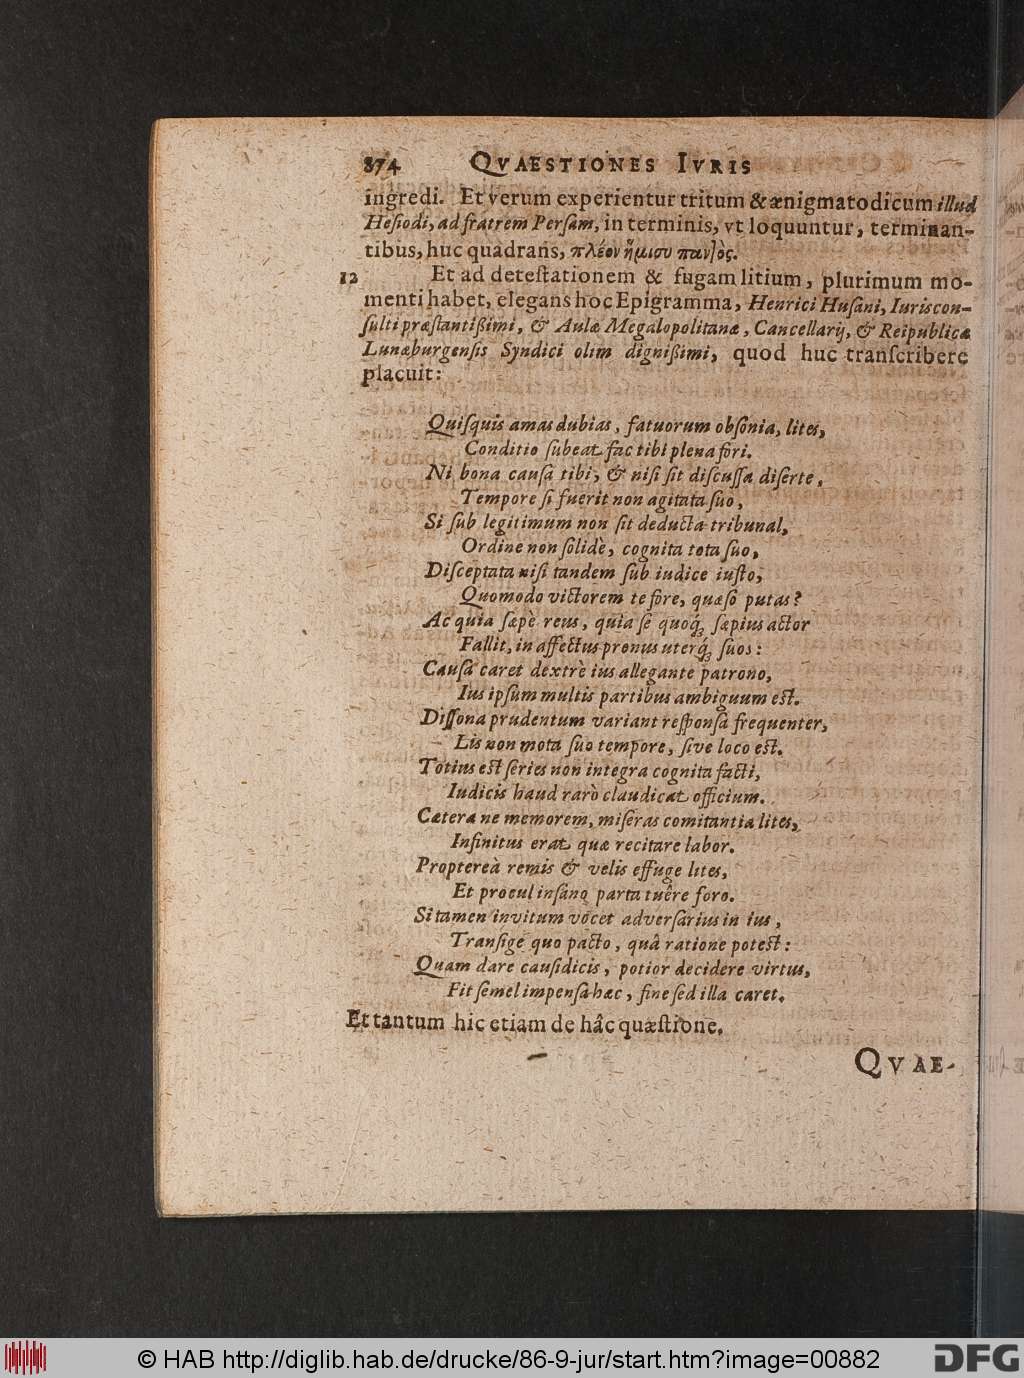 874 QVAESTIONES IVRIS
ingredi. Et verum experientur tritum & ænigmatodicum illud
Heſiodi, ad fratrem Perſam, in terminis, vt loquuntur, terminan-
tibus, huc quadrans, πλέον ἥμισυ παντὸς.
12 Et ad deteſtationem & fugam litium, plurimum mo-
menti habet, elegans hoc Epigramma, Henrici Huſani, Iuriscon-
ſulti præſtantißimi, & Aulæ Megalopolitanæ, Cancellarij, & Reipublicæ
Lunæburgenſis Syndici olim dignißimi, quod huc tranſcribere
placuit:
Quiſquis amas dubias, fatuorum obſonia, lites,
Conditio ſubeat fac tibi plena fori.
Ni bona cauſa tibi, & niſi ſit diſcuſſa diſerte,
Tempore ſi fuerit non agitata ſuo,
Si ſub legitimum non ſit deducta tribunal,
Ordine non ſolidè, cognita tota ſuo,
Diſceptata niſi tandem ſub iudice iuſto,
Quomodo victorem te fore, quæſo putas?
Ac quia ſæpè reus, quia ſe quoq́ꝫ ſæpius actor
Fallit, in affectus pronus uterq́ꝫ ſuos:
Cauſa caret dextrè ius allegante patrono,
Ius ipſum multis partibus ambiguum eſt.
Diſſona prudentum variant reſponſa frequenter,
Lis non mota ſuo tempore, ſive loco eſt.
Totius eſt ſeries non integra cognita facti,
Iudicis haud rarò claudicat officium.
Cætera ne memorem, miſeras comitantia lites,
Infinitus erat quæ recitare labor.
Proptereà remis & velis effuge lites,
Et procul inſano parta tuêre foro.
Si tamen invitum vocet adverſarius in ius,
Tranſige quo pacto, quâ ratione poteſt:
Quam dare cauſidicis, potior decidere virtus,
Fit ſemel impenſa hæc, fine ſed illa caret.
Et tantum hic etiam de hâc quæſtione.
QVAE-
© HAB http://diglib.hab.de/drucke/86-9-jur/start.htm?image=00882
DFG